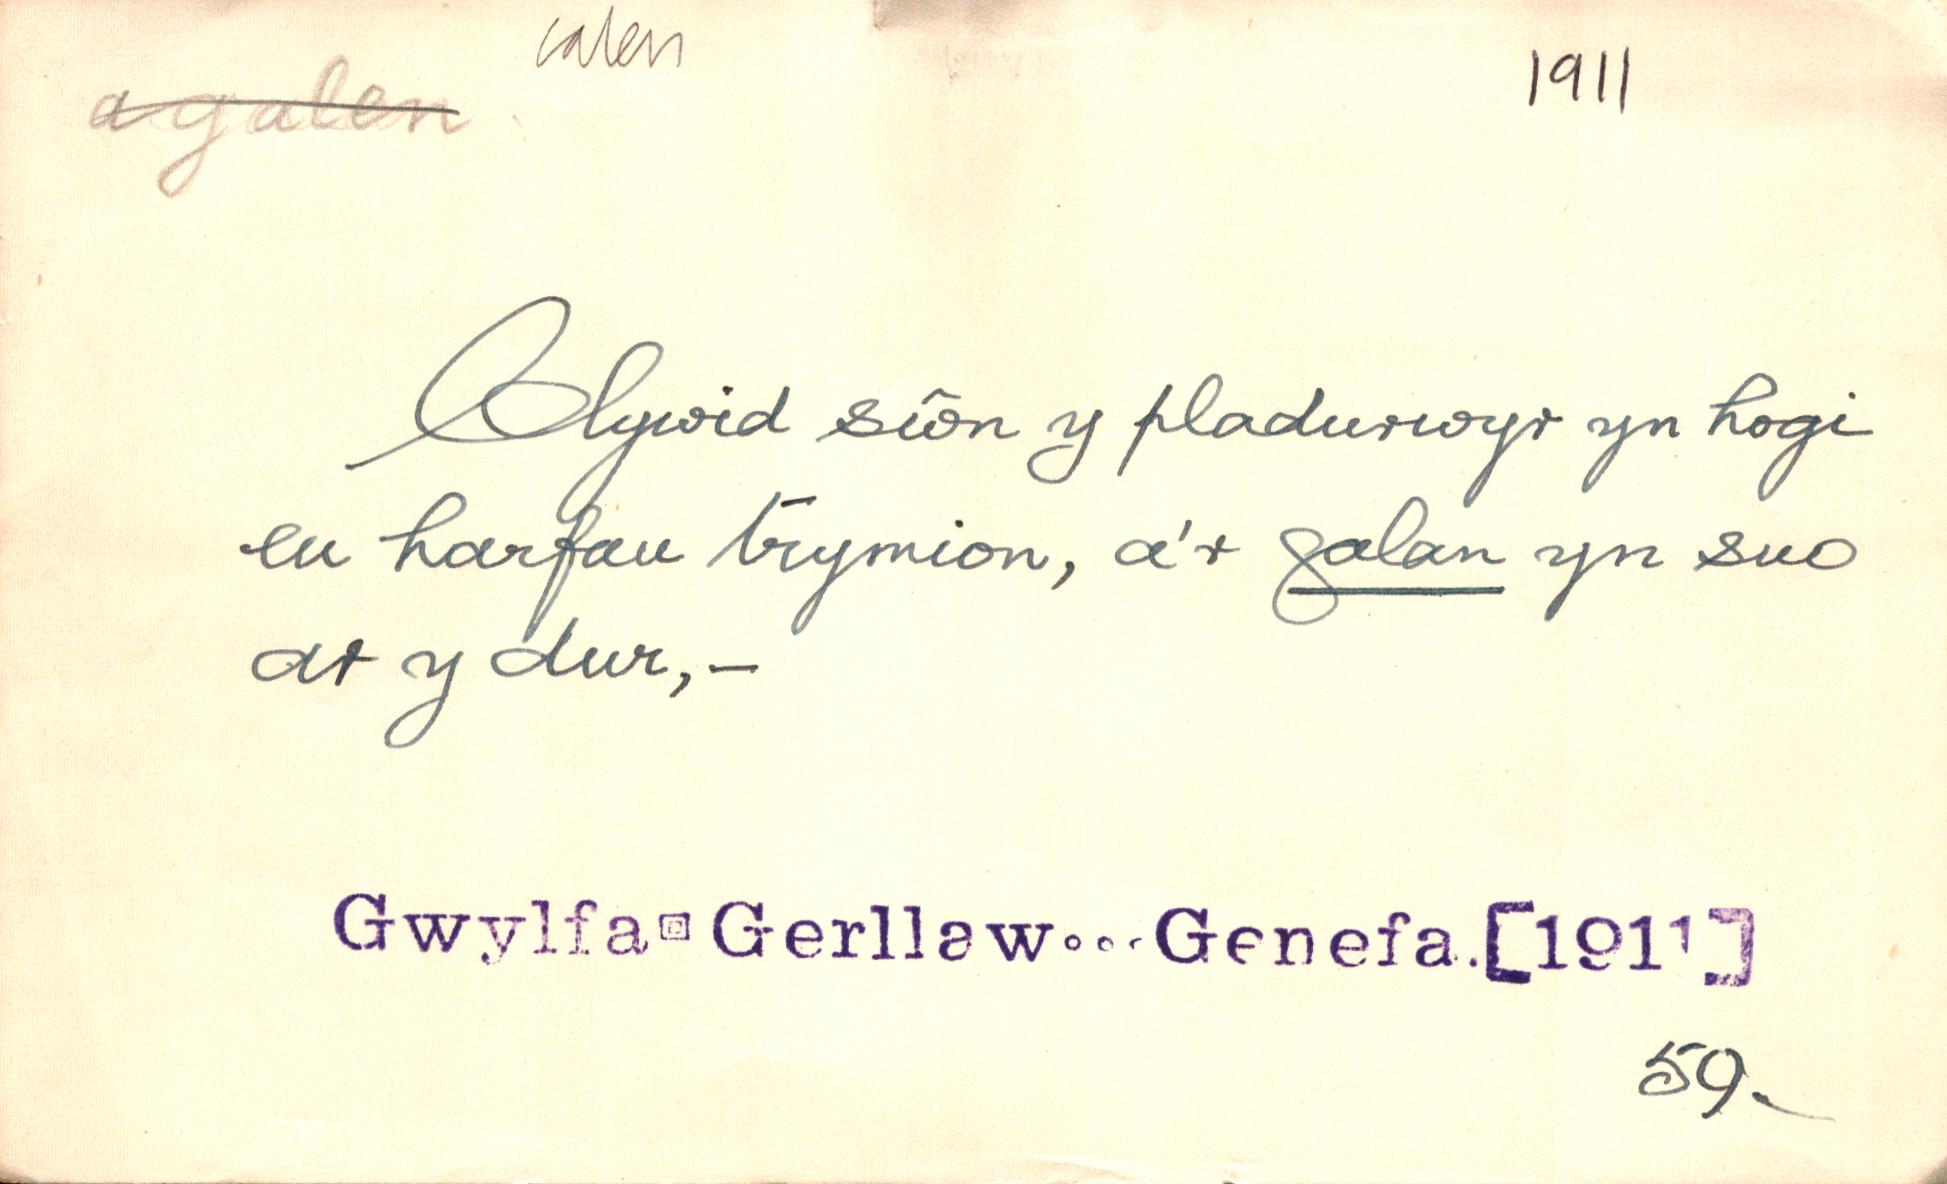 calen
1911
agalen
Clywid sŵn y pladurwyr yn hogi
eu harfau trymion, a'r galan yn suo
ar y dur,—
Gwylfa Gerllaw...Genefa.[1911]
59.